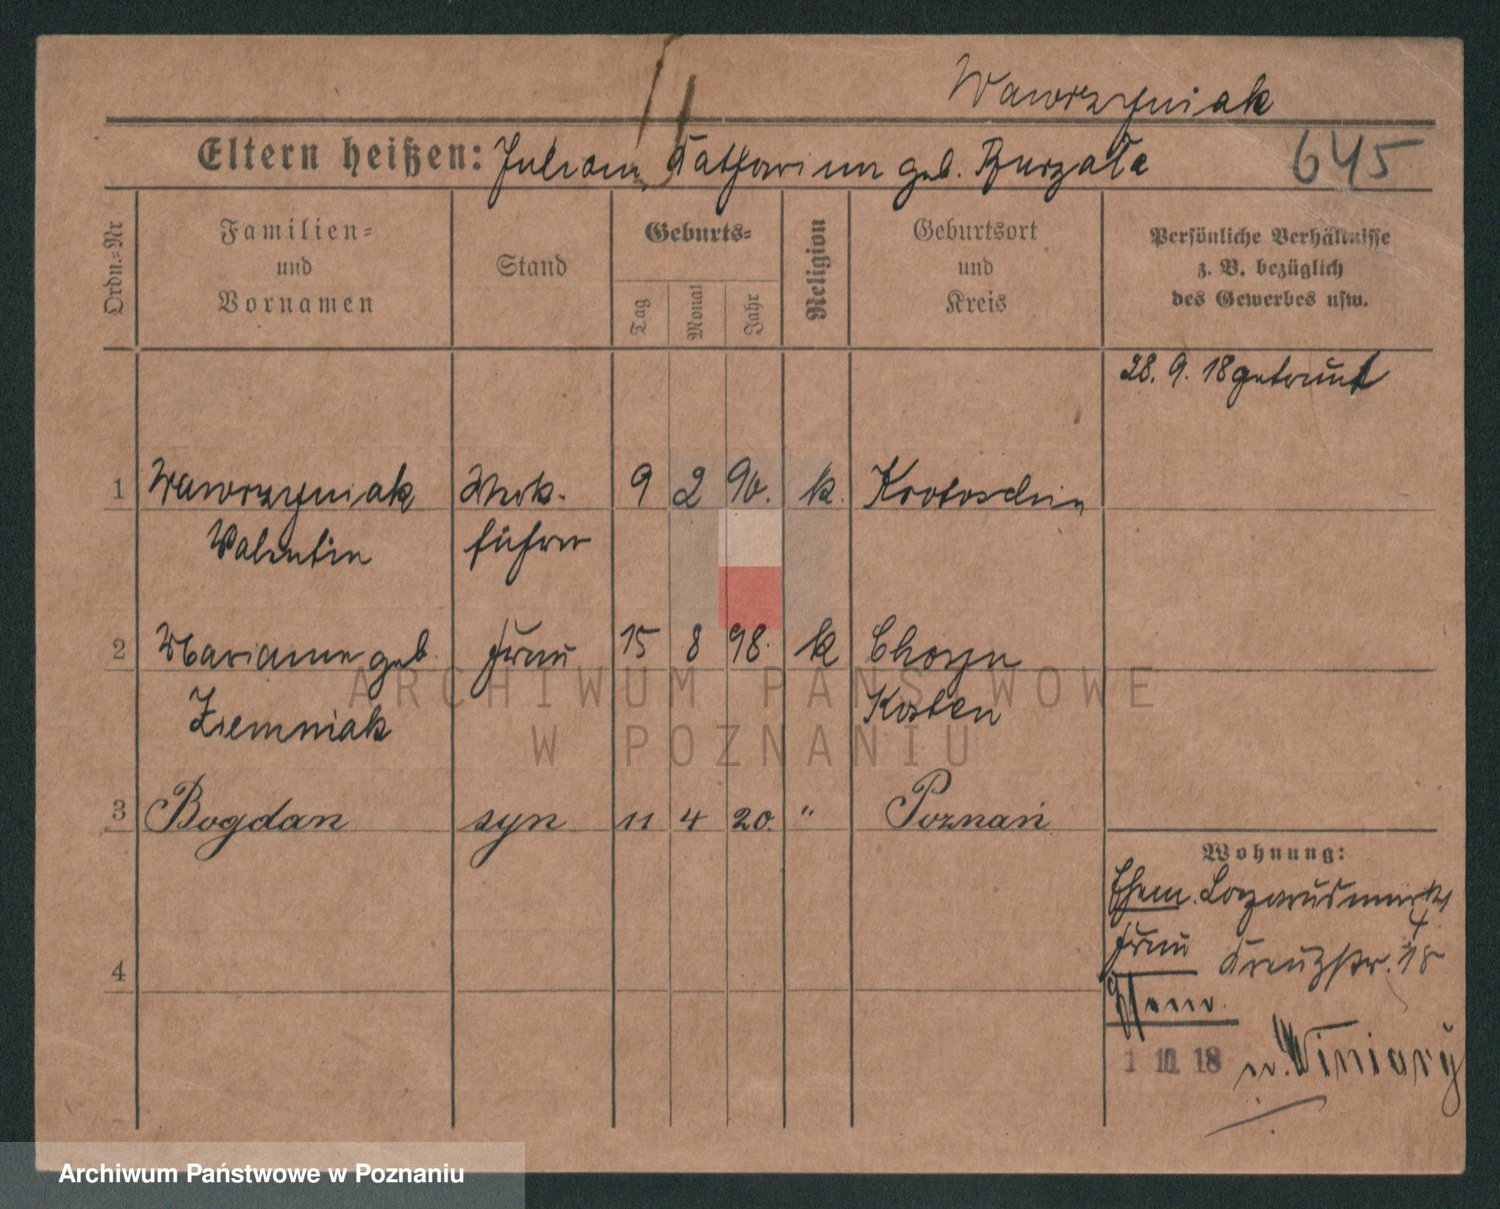 Wawrzyniak
Eltern heißen: Julian, Katharina geb. Burzała
645
Ordn.-Nr
Familien-
und
Vornamen
Stand
Geburts-
Tag
Monat
Jahr
Religion
Geburtsort
und
Kreis
Persönliche Verhältnisse
z. B. bezüglich
des Gewerbes usw.
28. 9. 18 getraut
1 Wawrzyniak Werk- 9 2 90. k. Krotoschin
Valentin führer
2 Marianna geb. Frau 15 8 98. k Choryn
Ziemniak Kosten
3 Bogdan syn 11 4 20. " Poznań
Wohnung:
Ehem. Lazarusmarkt
4
Frau Kreuzstr. 18
4
1 11 18 n. Winiary
ARCHIWUM PAŃSTWOWE
W POZNANIU
Archiwum Państwowe w Poznaniu